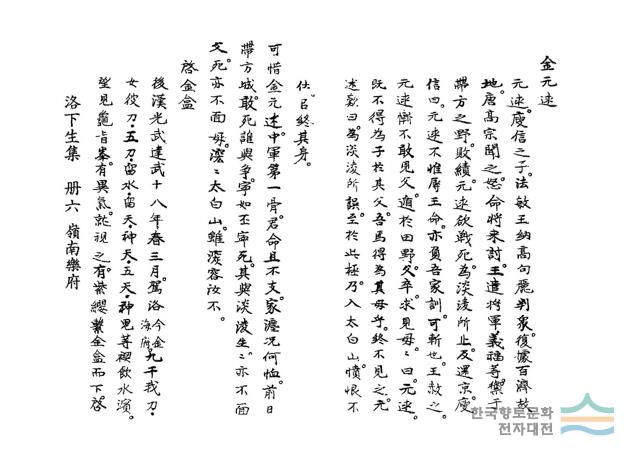 金元述
元述。庾信之子。法敏王納高句麗判衆。復據百濟故
地。唐高宗聞之怒。命將來討。王遣將軍義福等禦于
帶方之野。敗績。元述欲戰死。為淡淩所止。及還京。庾
信曰。元述不惟辱王命。亦負吾家訓。可斬也。王赦之。
元述慚不敢見父。遁於田野。父卒。求見母。〻曰。元述
既不得為子於其父。吾焉得為其母乎。終不見之。元
述歎曰。為淡淩所誤。至於此極乃。入太白山。憤恨不
仕。以終其身。
可惜金元述。中軍第一骨。君命且不支。家瀍況何恤。前日
帶方城。敢死誰與爭。寧如丕寧死。其與淡淩生。〻亦不面
父。死亦不面母。深〻太白山。雖深容汝不。
啓金盒
後漢光武建武十八年春三月。駕洛今金海府。九干我刀・
女彼刀・五刀・留水・留天・神天・五天・神鬼等禊飲水濱。
望見龜旨峯。有異氣。就視之。有紫纓繫金盒而下。啓
洛下生集 册六 嶺南樂府
한국향토문화
전자대전